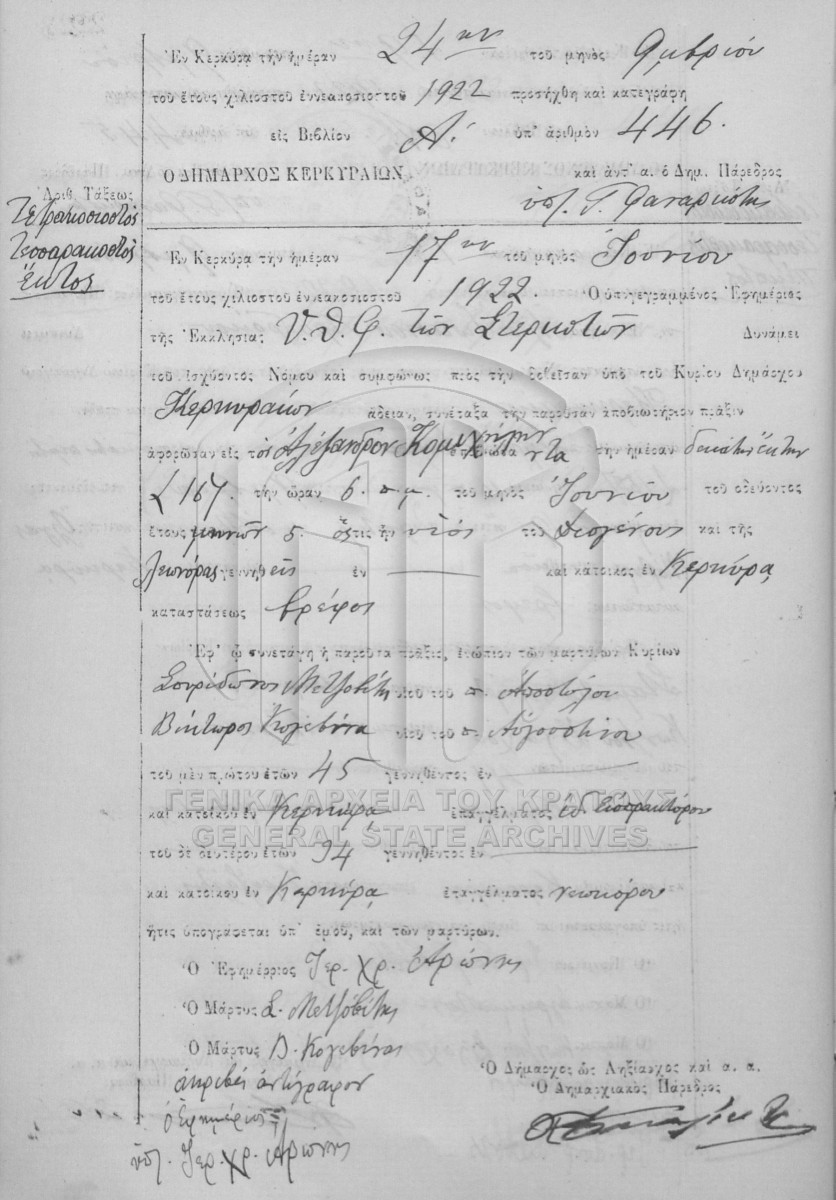 Ἐν Κερκύρᾳ τὴν ἡμέραν 24ην τοῦ μηνὸς 9μβρίου
τοῦ ἔτους χιλιοστοῦ ἐννεακοσιοστοῦ 1922 προσήχθη καὶ κατεγράφη
εἰς Βιβλίον Α΄. ὑπ᾽ ἀριθμὸν 446.
Ο ΔΗΜΑΡΧΟΣ ΚΕΡΚΥΡΑΙΩΝ καὶ ἀντ᾽ α. ὁ Δημ. Πάρεδρος
ὑπ. Γ. Φαναριώτης
Ἀριθ. Τάξεως
Τετρακοσιοστὸς
Τεσσαρακοστὸς
ἕκτος
Ἐν Κερκύρᾳ τὴν ἡμέραν 17ην τοῦ μηνὸς Ἰουνίου
τοῦ ἔτους χιλιοστοῦ ἐννεακοσιοστοῦ 1922. Ὁ ὑπογεγραμμένος Ἐφημέριος
τῆς Ἐκκλησίας Υ.Θ.Φ. τῶν Στεριωτῶν Δυνάμει
τοῦ ἰσχύοντος Νόμου καὶ συμφώνως πρὸς τὴν δοθεῖσαν ὑπὸ τοῦ Κυρίου Δημάρχου
Κερκυραίων ἄδειαν, συνέταξα τὴν παροῦσαν ἀποβιωτήριον πρᾶξιν
ἀφορῶσαν εἰς τὸν Ἀλέξανδρον ντα τὴν ἡμέραν δεκάτην ἕκτην
16η. τὴν ὥραν 6. π.μ. τοῦ μηνὸς Ἰουνίου τοῦ ὁδεύοντος
ἔτους μηνῶν 5. ὅςτις ἦν υἱὸς τοῦ Διογένους καὶ τῆς
Λεωνόρας γεννηθεὶς ἐν καὶ κάτοικος ἐν Κερκύρᾳ
καταστάσεως βρέφος
Ἐφ᾽ ᾧ συνετάγη ἡ παροῦσα πρᾶξις, ἐνώπιον τῶν μαρτύρων Κυρίων
Σπυρίδωνος Μετζοβίτη υἱοῦ τοῦ π. Ἀποστόλου
Βίκτωρος Κογεβίνα υἱοῦ τοῦ π. Αὐγουστίνου
τοῦ μὲν πρώτου ἐτῶν 45 γεννηθέντος ἐν
καὶ κατοίκου ἐν Κερκύρᾳ ἐπαγγέλματος εἰσπράκτορος
τοῦ δὲ δευτέρου ἐτῶν 34 γεννηθέντος ἐν
καὶ κατοίκου ἐν Κερκύρᾳ ἐπαγγέλματος νεωκόρου
ἥτις ὑπογράφεται ὑπ᾽ ἐμοῦ, καὶ τῶν μαρτύρων.
Ὁ Ἐφημέριος Ἱερ. Χρ. Ἀρώνης
Ὁ Μάρτυς Σ. Μετζοβίτης
Ὁ Μάρτυς Β. Κογεβίνας
ἀκριβὲς ἀντίγραφον
ὁ Ἐφημέριος
ὑπ. Ἱερ. Χρ. Ἀρώνης
Ὁ Δήμαρχος ὡς Ληξίαρχος καὶ α. α.
Ὁ Δημαρχιακὸς Πάρεδρος
ΓΕΝΙΚΑ ΑΡΧΕΙΑ ΤΟΥ ΚΡΑΤΟΥΣ
GENERAL STATE ARCHIVES